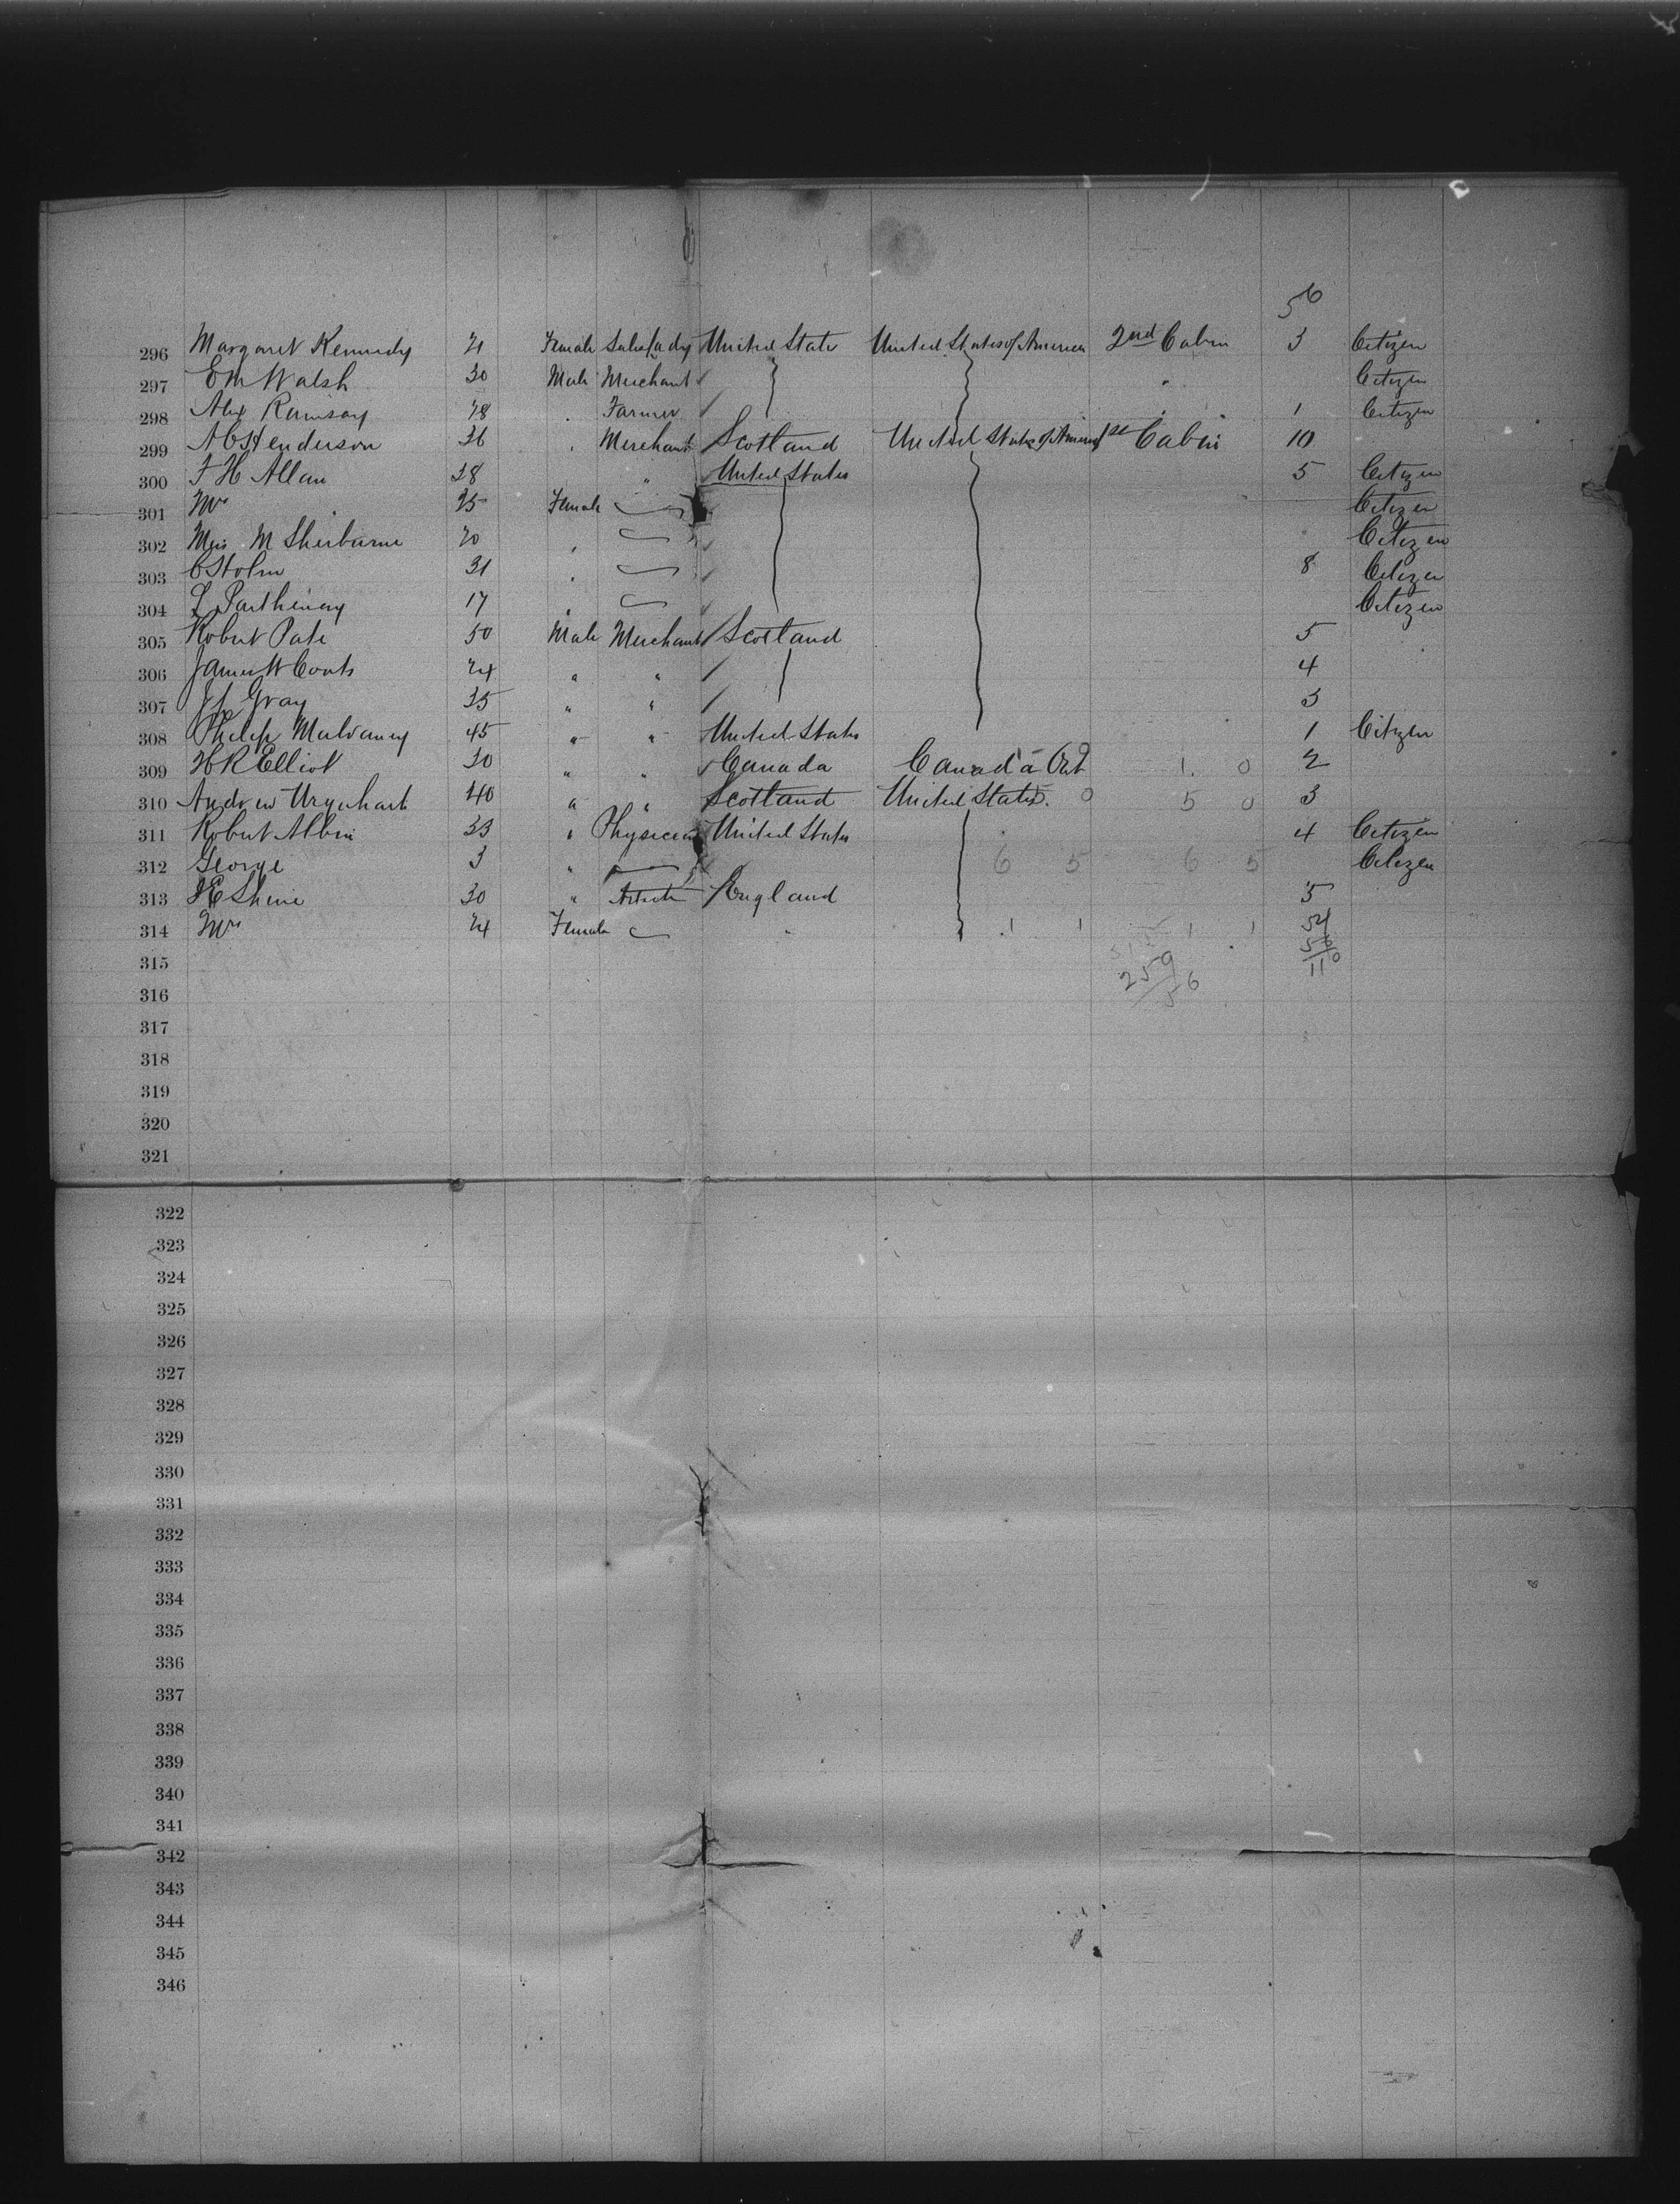 56
296 Margaret Kennedy 21 Female Saleslady United States United States of America 2nd Cabin 3 Citizen
297 E M Walsh 30 Male Merchant " Citizen
298 Alex Ramsay 28 " Farmer " 1 Citizen
299 A C Henderson 36 " Merchant Scotland United States of America 1st Cabin 10
300 F H Allan 38 " United States 5 Citizen
301 Mrs 25 Female Citizen
302 Miss M Sherburne 20 " Citizen
303 C Holm 31 " 8 Citizen
304 L 17 " Citizen
305 Robert Pate 50 Male Merchant Scotland 5
306 James W Coats 24 " " 4
307 Gray 35 " " 3
308 Philip Mulvaney 45 " " United States 1 Citizen
309 H R Elliot 30 " " Canada Canada Ont 1 0 2
310 Andrew Urquhart 40 " " Scotland United States 0 5 0 3
311 Robert Albin 33 " Physician United States 4 Citizen
312 George 3 " 6 5 6 5 Citizen
313 30 " Artist England 5
314 Mrs 24 Female 1 1 1 1 54
315 259 56
316 56 110
317
318
319
320
321
322
323
324
325
326
327
328
329
330
331
332
333
334
335
336
337
338
339
340
341
342
343
344
345
346